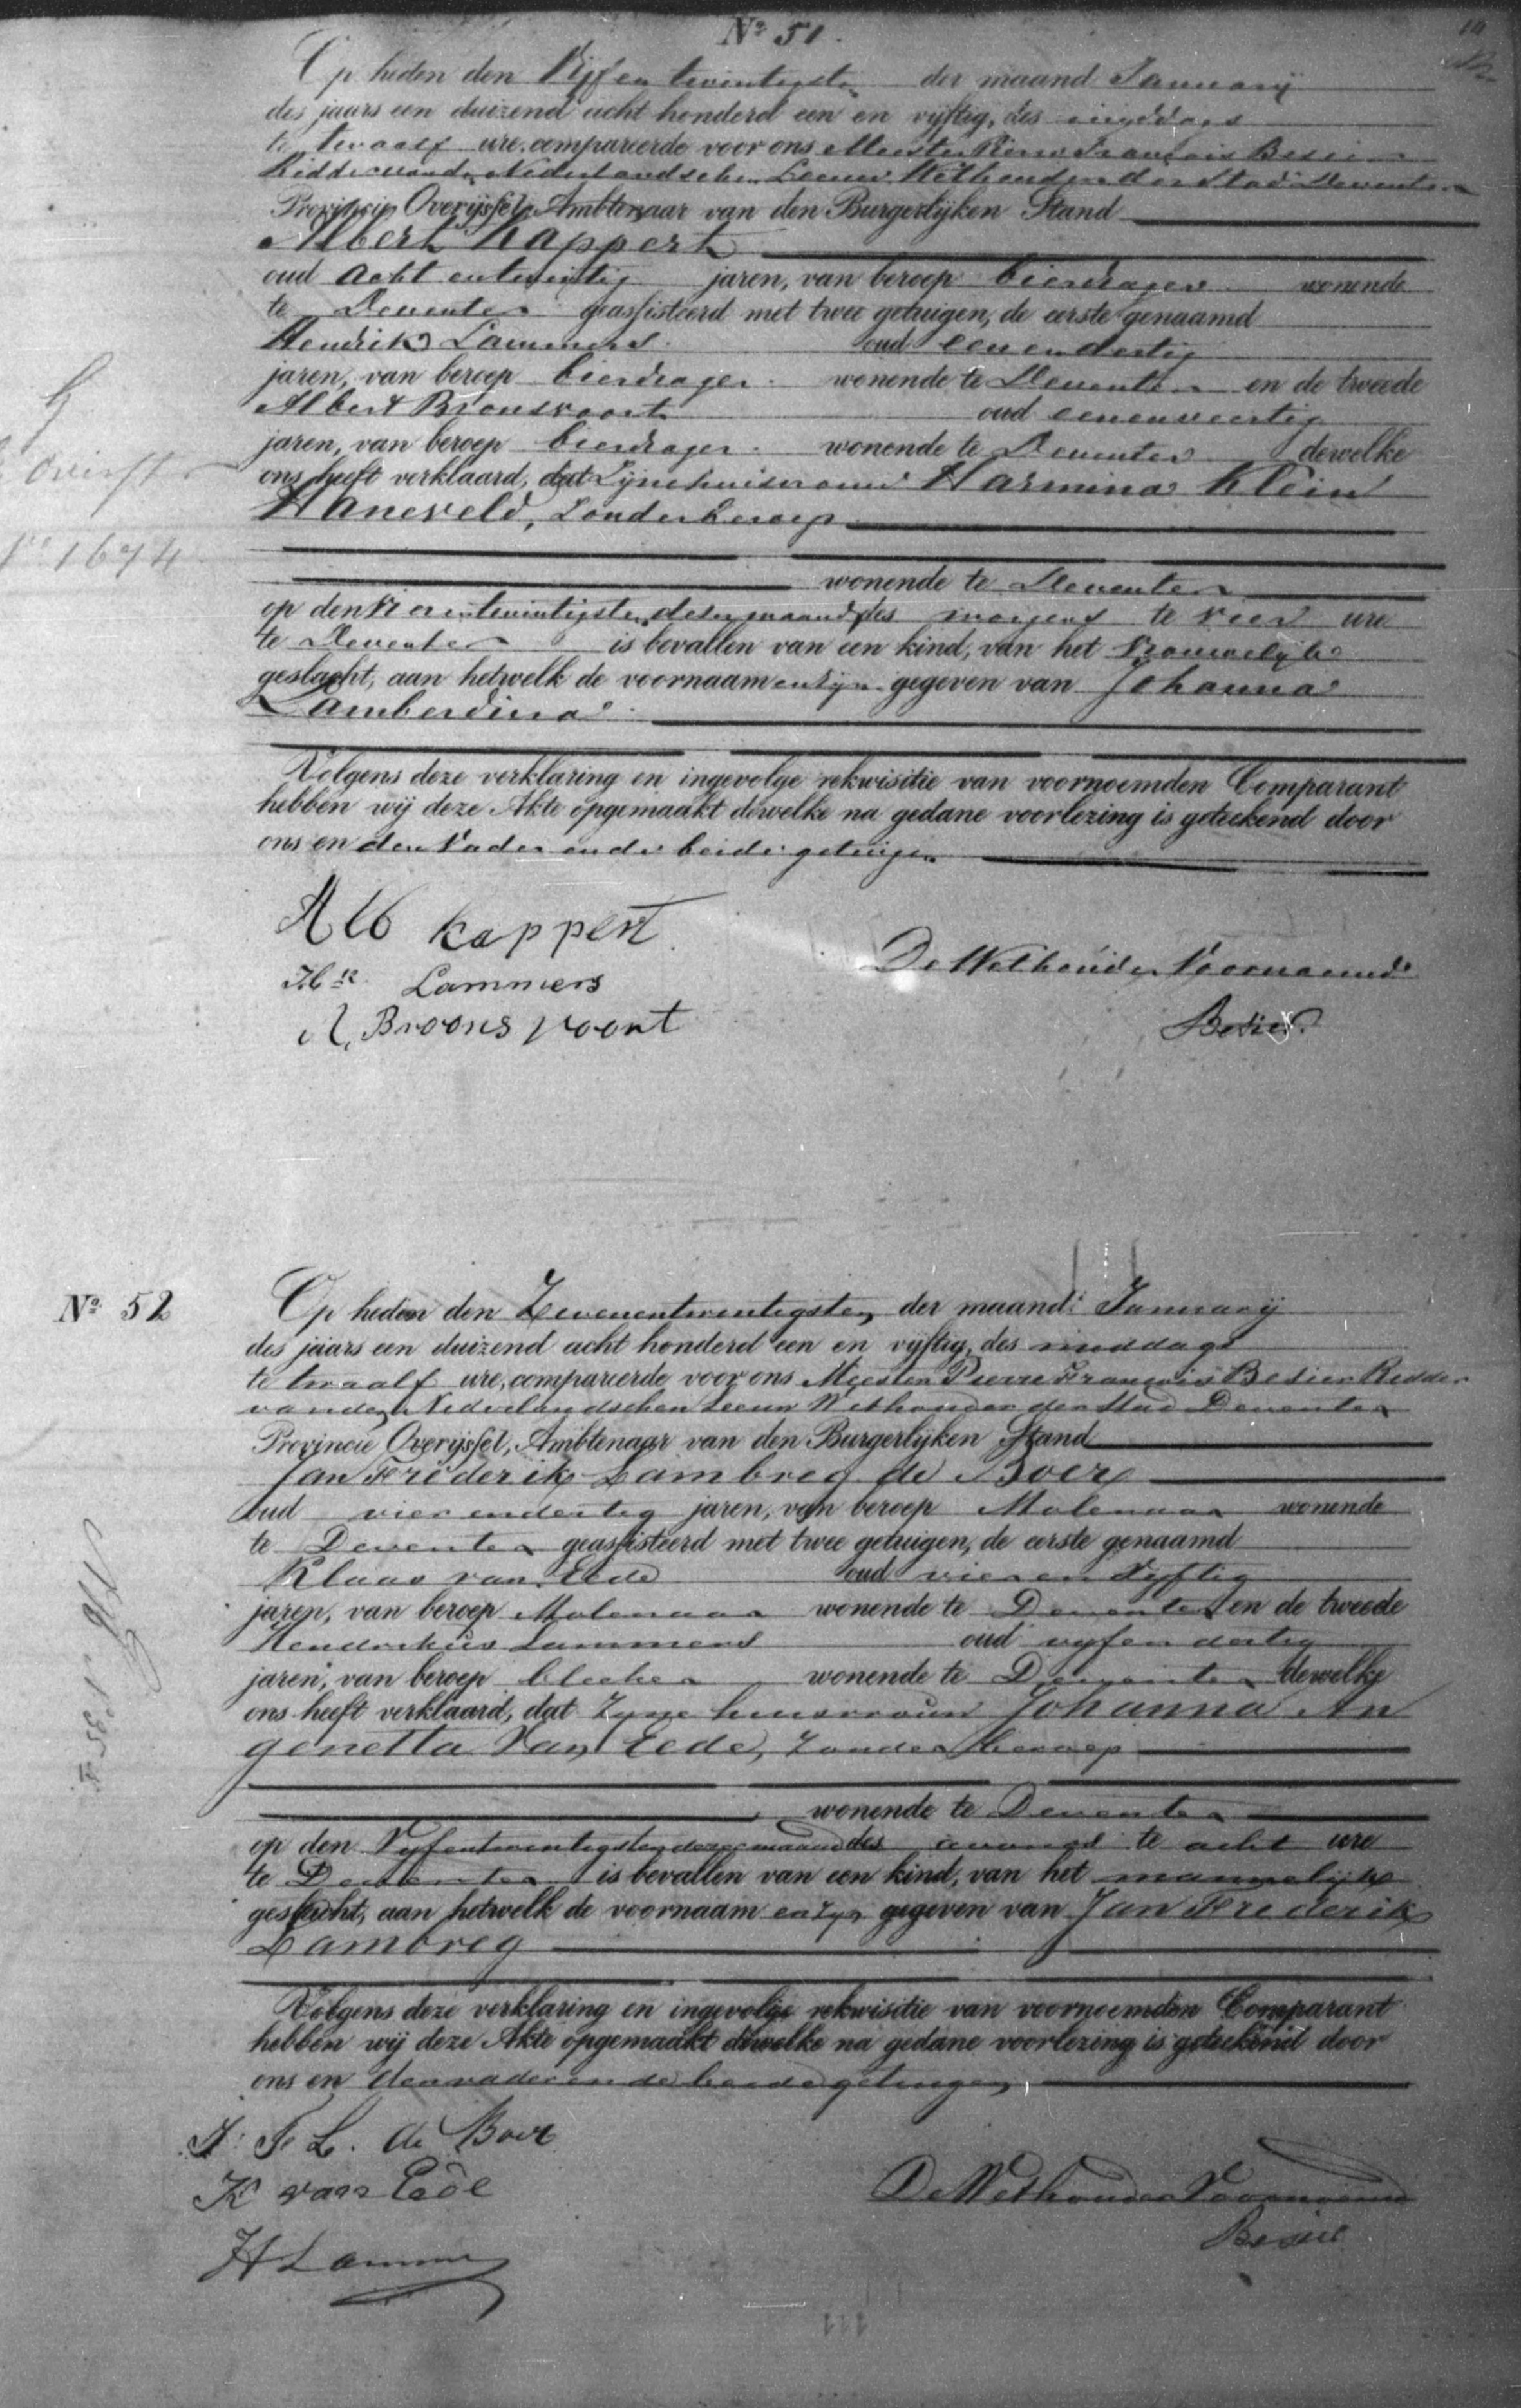 Nº 51.
Op heden den Vijf en twintigsten der maand Januarij
des jaars een duizend acht honderd een en vijftig, des middags
te twaalf ure, compareerde voor ons Meester Pierre François Besier
Ridder van den Nederlandschen Leeuw Wethouder der Stad Deventer
Provincie Overijssel, Ambtenaar van den Burgerlijken Stand
Albert Kappert
oud acht en twintig jaren, van beroep bierdrager wonende
te Deventer geassisteerd met twee getuigen, de eerste genaamd
Hendrik Lammers oud een en dertig
jaren, van beroep bierdrager wonende te Deventer en de tweede
Albert Bronsvoort oud een en veertig
jaren, van beroep bierdrager wonende te Deventer dewelke
ons heeft verklaard, dat Zijne huisvrouw Harmina Klein
Haneveld, Zonder beroep
wonende te Deventer
op den Vier en twintigsten dezer maand des morgens te vier ure
te Deventer is bevallen van een kind, van het Vrouwelijke
geslacht, aan hetwelk de voornaam en zijn gegeven van Johanna
Lamberdina
Volgens deze verklaring en ingevolge rekwisitie van voornoemden Comparant
hebben wij deze Akte opgemaakt dewelke na gedane voorlezing is geteekend door
ons en den Vader en de beide getuigen
Alb kappert
Hk Lammers
A, Broonsvoort
De Wethouder Voornoemd
Besier
1694
Nº 52
Op heden den Zevenentwentigsten der maand Januarij
des jaars een duizend acht honderd een en vijftig, des middags
te twaalf ure, compareerde voor ons Meester Pierre François Besier Ridder
van den Nederlandschen Leeuw Wethouder der Stad Deventer
Provincie Overijssel, Ambtenaar van den Burgerlijken Stand
Jan Frederik Lambreg de Boer
oud vier en dertig jaren, van beroep Molenaar wonende
te Deventer geassisteerd met twee getuigen, de eerste genaamd
Klaas van Eede oud vier en Vyftig
jaren, van beroep Molenaar wonende te Deventer en de tweede
Hendrikus Lammers oud vyf en dertig
jaren, van beroep bleeker wonende te Deventer dewelke
ons heeft verklaard, dat Zyne huisvrouw Johanna An
genetta Van Eede, Zonder beroep
wonende te Deventer
op den Vyfentwentigsten dezer maand des avonds te acht ure
te Deventer is bevallen van een kind, van het mannelijke
geslacht, aan hetwelk de voornaam en Zyn gegeven van Jan Frederik
Lambreg
Volgens deze verklaring en ingevolge rekwisitie van voornoemden Comparant
hebben wij deze Akte opgemaakt dewelke na gedane voorlezing is geteekend door
ons en den vader en de beide getuigen
J. F L. de Boer
K van Eede
H Lammers
De Wethouder Voornoemd
Besier